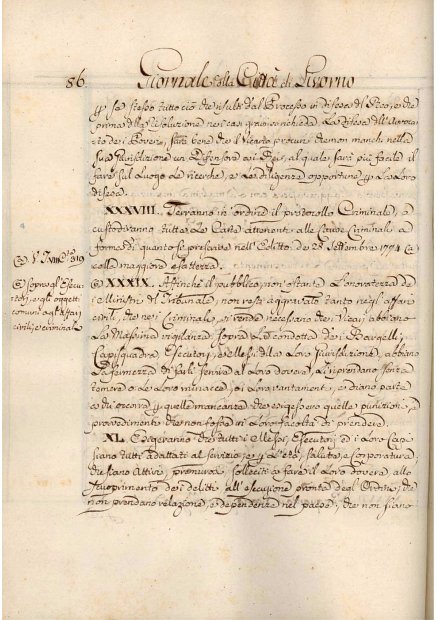 86. Giornale della Città di Livorno
se stesso tutto ciò che risulta dal Processo in difesa del Reo, e che
prima della risoluzione nei casi gravi si richieda la Difesa dell'Avvoca
to dei Poveri, sarà bene che il Vicario procuri che non manchi nella
sua Giurisdizione un Difensore dei Rei, al quale sarà più facile il
fare sul Luogo le ricerche, e le diligenze opportune per la Loro
difesa.
XXXVIII. Terranno in ordine il protocollo Criminale, e
custodiranno tutte le Carte attenenti alle Cause Criminali a
forma di quanto si prescrive nell'Editto de 28 Settembre 1774 ca
colla maggiore esattezza.
XXXIX. Affinchè il pubblico, non ostante l'onoratezza de
i Ministri del Tribunale, non resti aggravato tanto negli affari
civili, che nei Criminali, si rende necessario che i Vicari abbiano
la massima vigilanza sopra la condotta dei Bargelli,
Capisquadra, Esecutori, e Messi della Loro Giurisdizione, abbiano
la fermezza di farli servire al Loro dovere, li riprendano senza
temere o le Loro minacce, o i Loro vantamenti, e diano parte
a chi occorra per quelle mancanze che esigessero quelle punizioni, o
provvedimenti che non fosse in Loro facoltà di prendere.
XL. Osserveranno che tutti i Messi, Esecutori, ed i Loro Capi
siano tutti adattati al servizio, e per l'età, salute, e corporatura,
che siano Attivi, premurosi, solleciti a fare il Loro dovere allo
scuoprimento dei delitti all'esecuzione pronta degli Ordini, che
non prendano relazione, e dipendenza nel paese, che non siano
Sopra gl'Esecu
tori, e gli oggetti
comuni agl'Affari
civili, e criminali